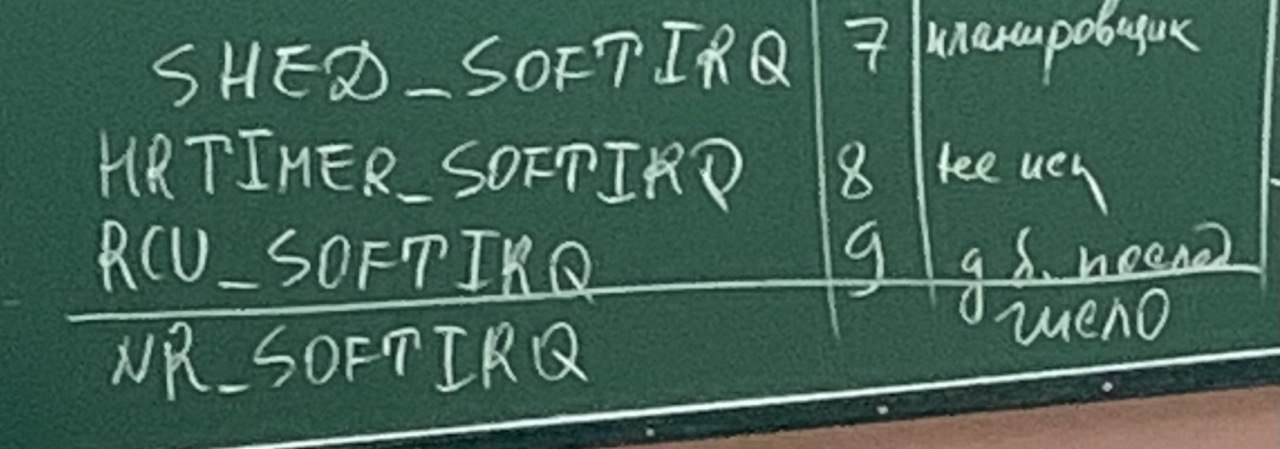 SHED_SOFTIRQ 7 планировщик
HRTIMER_SOFTIRQ 8 не исп
RCU_SOFTIRQ 9 д.б. послед
NR_SOFTIRQ число